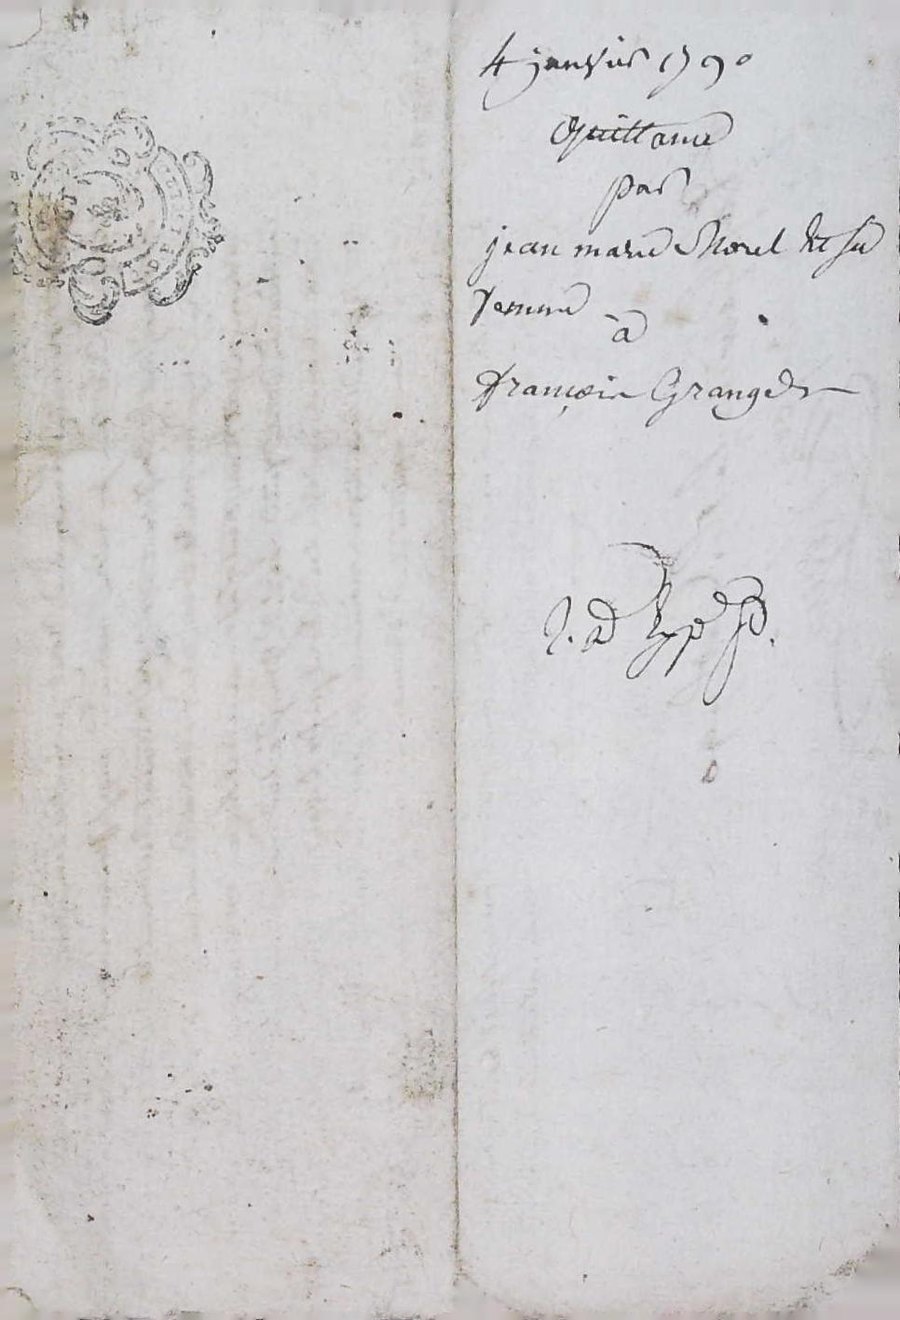 4 janvier 1790
Quittance
par
jean marie Morel et sa
femme
à
François Granger